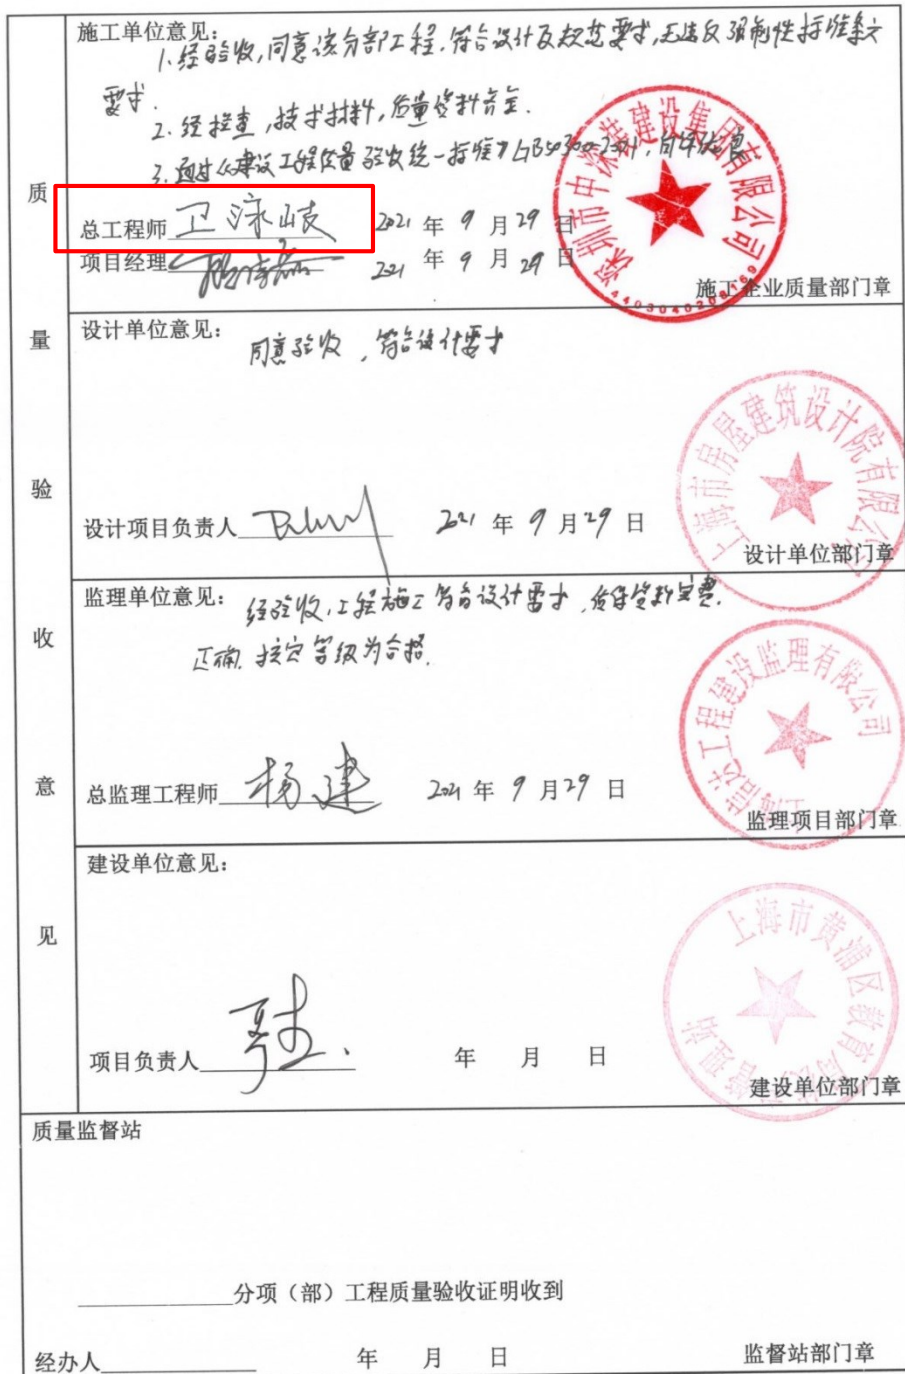 施工单位意见:
1、经验收,同意该分部工程.符合设计及规范要求,无违反强制性标准条文
要求.
2、经检查,技术材料,质量资料齐全.
3、通过《建设工程质量验收统一标准》GB50300-2001,自评优良
总工程师 卫泳岐 2021年9月29日
项目经理 2021年9月29日
深圳市中深建设集团有限公司
施工企业质量部门章
设计单位意见:
同意验收,符合设计要求
设计项目负责人 2021年9月29日
上海市房屋建筑设计院有限公司
设计单位部门章
监理单位意见:
经验收,工程施工符合设计要求,质保资料完整.
正确.核定等级为合格.
总监理工程师 杨建 2021年9月29日
工程建设监理有限公司
监理项目部门章
建设单位意见:
上海市黄浦区教育局
管理站
项目负责人 年 月 日
建设单位部门章
质量验收意见
质量监督站
分项(部)工程质量验收证明收到
经办人 年 月 日
监督站部门章